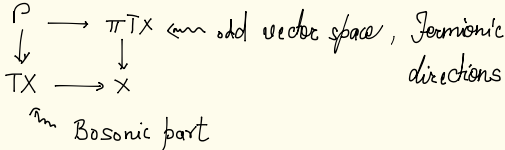 P → πTX ← odd vector space, Fermionic
directions
TX → X
Bosonic part